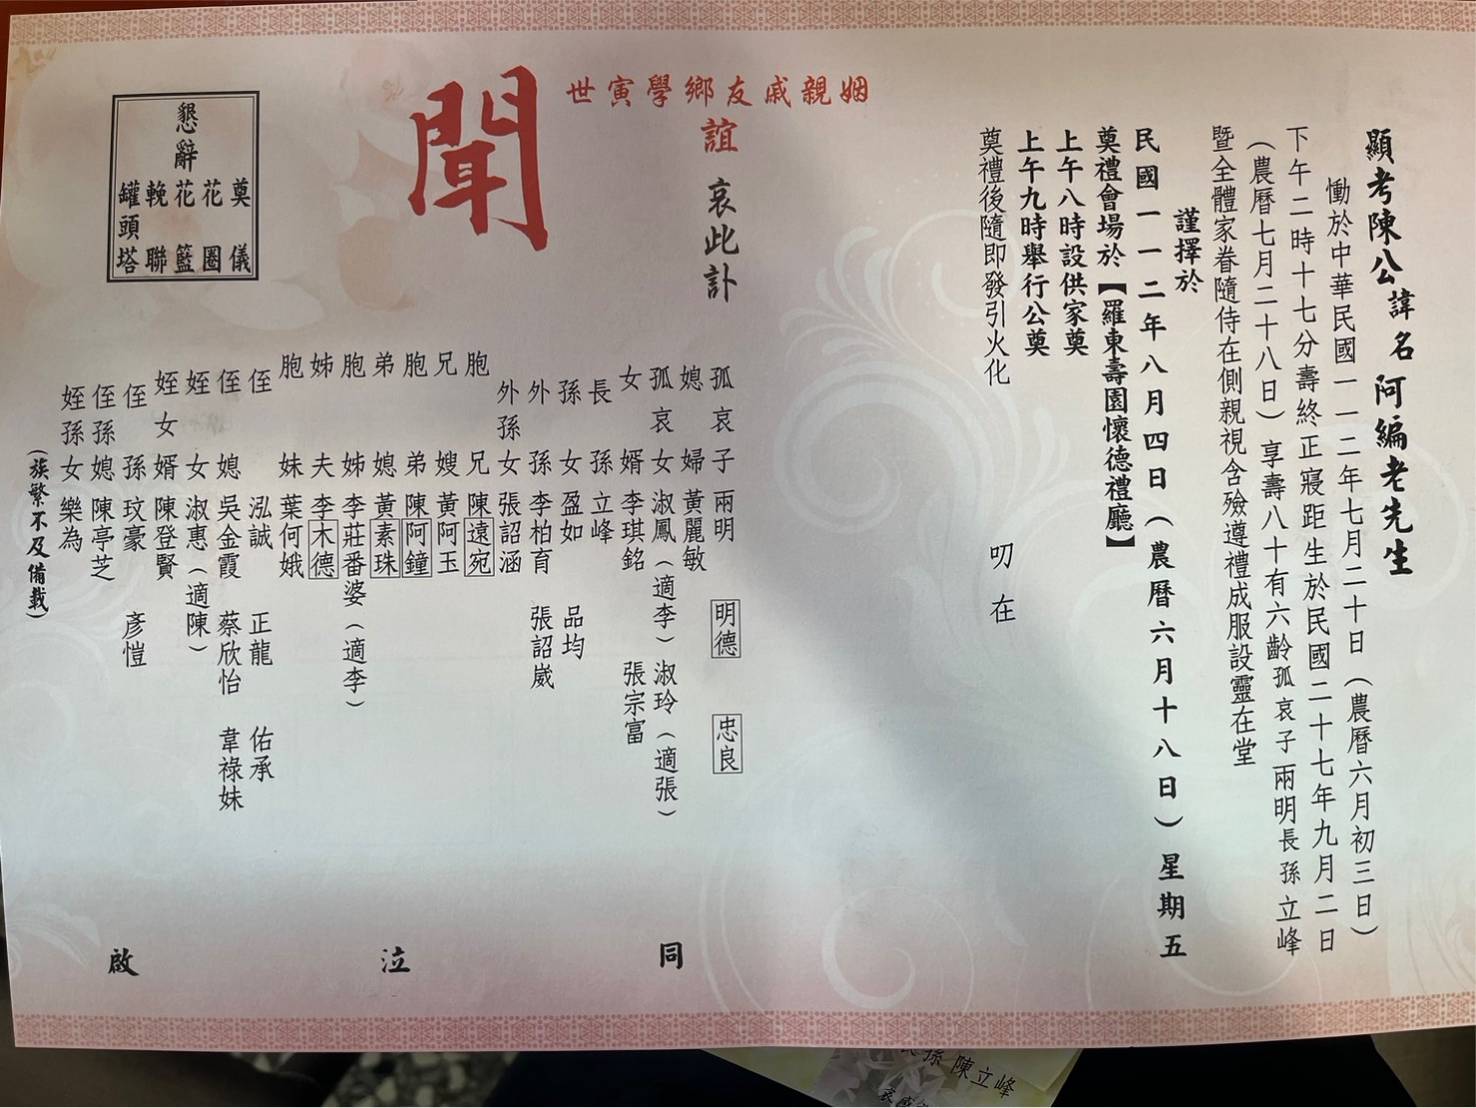 顯考陳公諱名阿編老先生
慟於中華民國一一二年七月二十日（農曆六月初三日）
下午二時十七分壽終正寢距生於民國二十七年九月二日
（農曆七月二十八日）享壽八十有六齡孤哀子兩明長孫立峰
暨全體家眷隨侍在側親視含殮遵禮成服設靈在堂
謹擇於
民國一一二年八月四日（農曆六月十八日）星期五
奠禮會場於【羅東壽園懷德禮廳】
上午八時設供家奠
上午九時舉行公奠
奠禮後隨即發引火化
叨在
姻親戚友鄉學寅世
誼 哀此訃
聞
孤哀子 兩明 明德 忠良
媳婦 黃麗敏
孤哀女 淑鳳（適李） 淑玲（適張）
女婿 李琪銘 張宗富
長孫 立峰
孫女 盈如 品均
外孫 李柏育 張詔崴
外孫女 張詔涵
胞兄 陳遠宛
兄嫂 黃阿玉
胞弟 陳阿鐘
弟媳 黃素珠
胞姊 李莊番婆（適李）
姊夫 李木德
胞妹 葉何娥
侄 泓誠 正龍 佑承
侄媳 吳金霞 蔡欣怡 韋祿妹
姪女 淑惠（適陳）
姪女婿 陳登賢
侄孫 玟豪 彥愷
侄孫媳 陳亭芝
姪孫女 樂為
（族繁不及備載）
同泣啟
懇辭
奠儀
花圈
花籃
輓聯
罐頭塔
孫 陳立峰